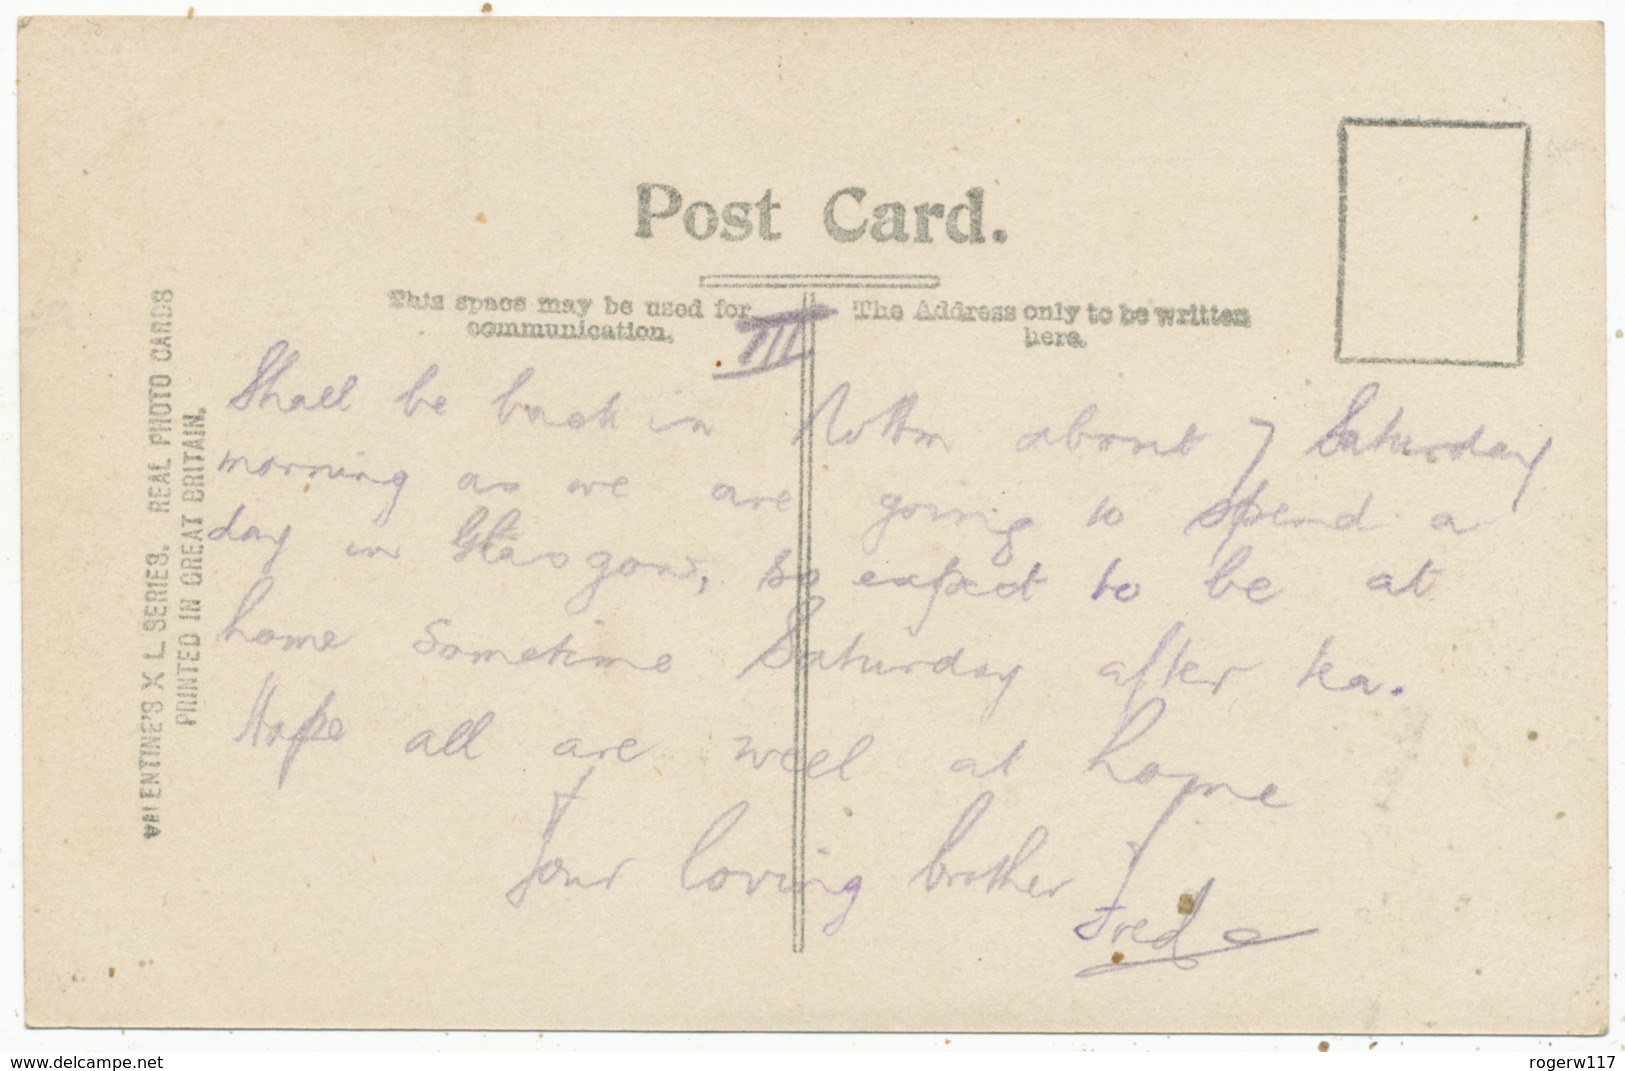 Post Card.
This space may be used for
communication.
The Address only to be written
here.
III
Shall be back in Nottm about 7 Saturday
morning as we are going to spend a
day in Glasgow, so expect to be at
home sometime Saturday after tea.
Hope all are well at home
Your loving brother
Fred
VALENTINE'S X L SERIES. REAL PHOTO CARDS
PRINTED IN GREAT BRITAIN.
www.delcampe.net
rogerw117